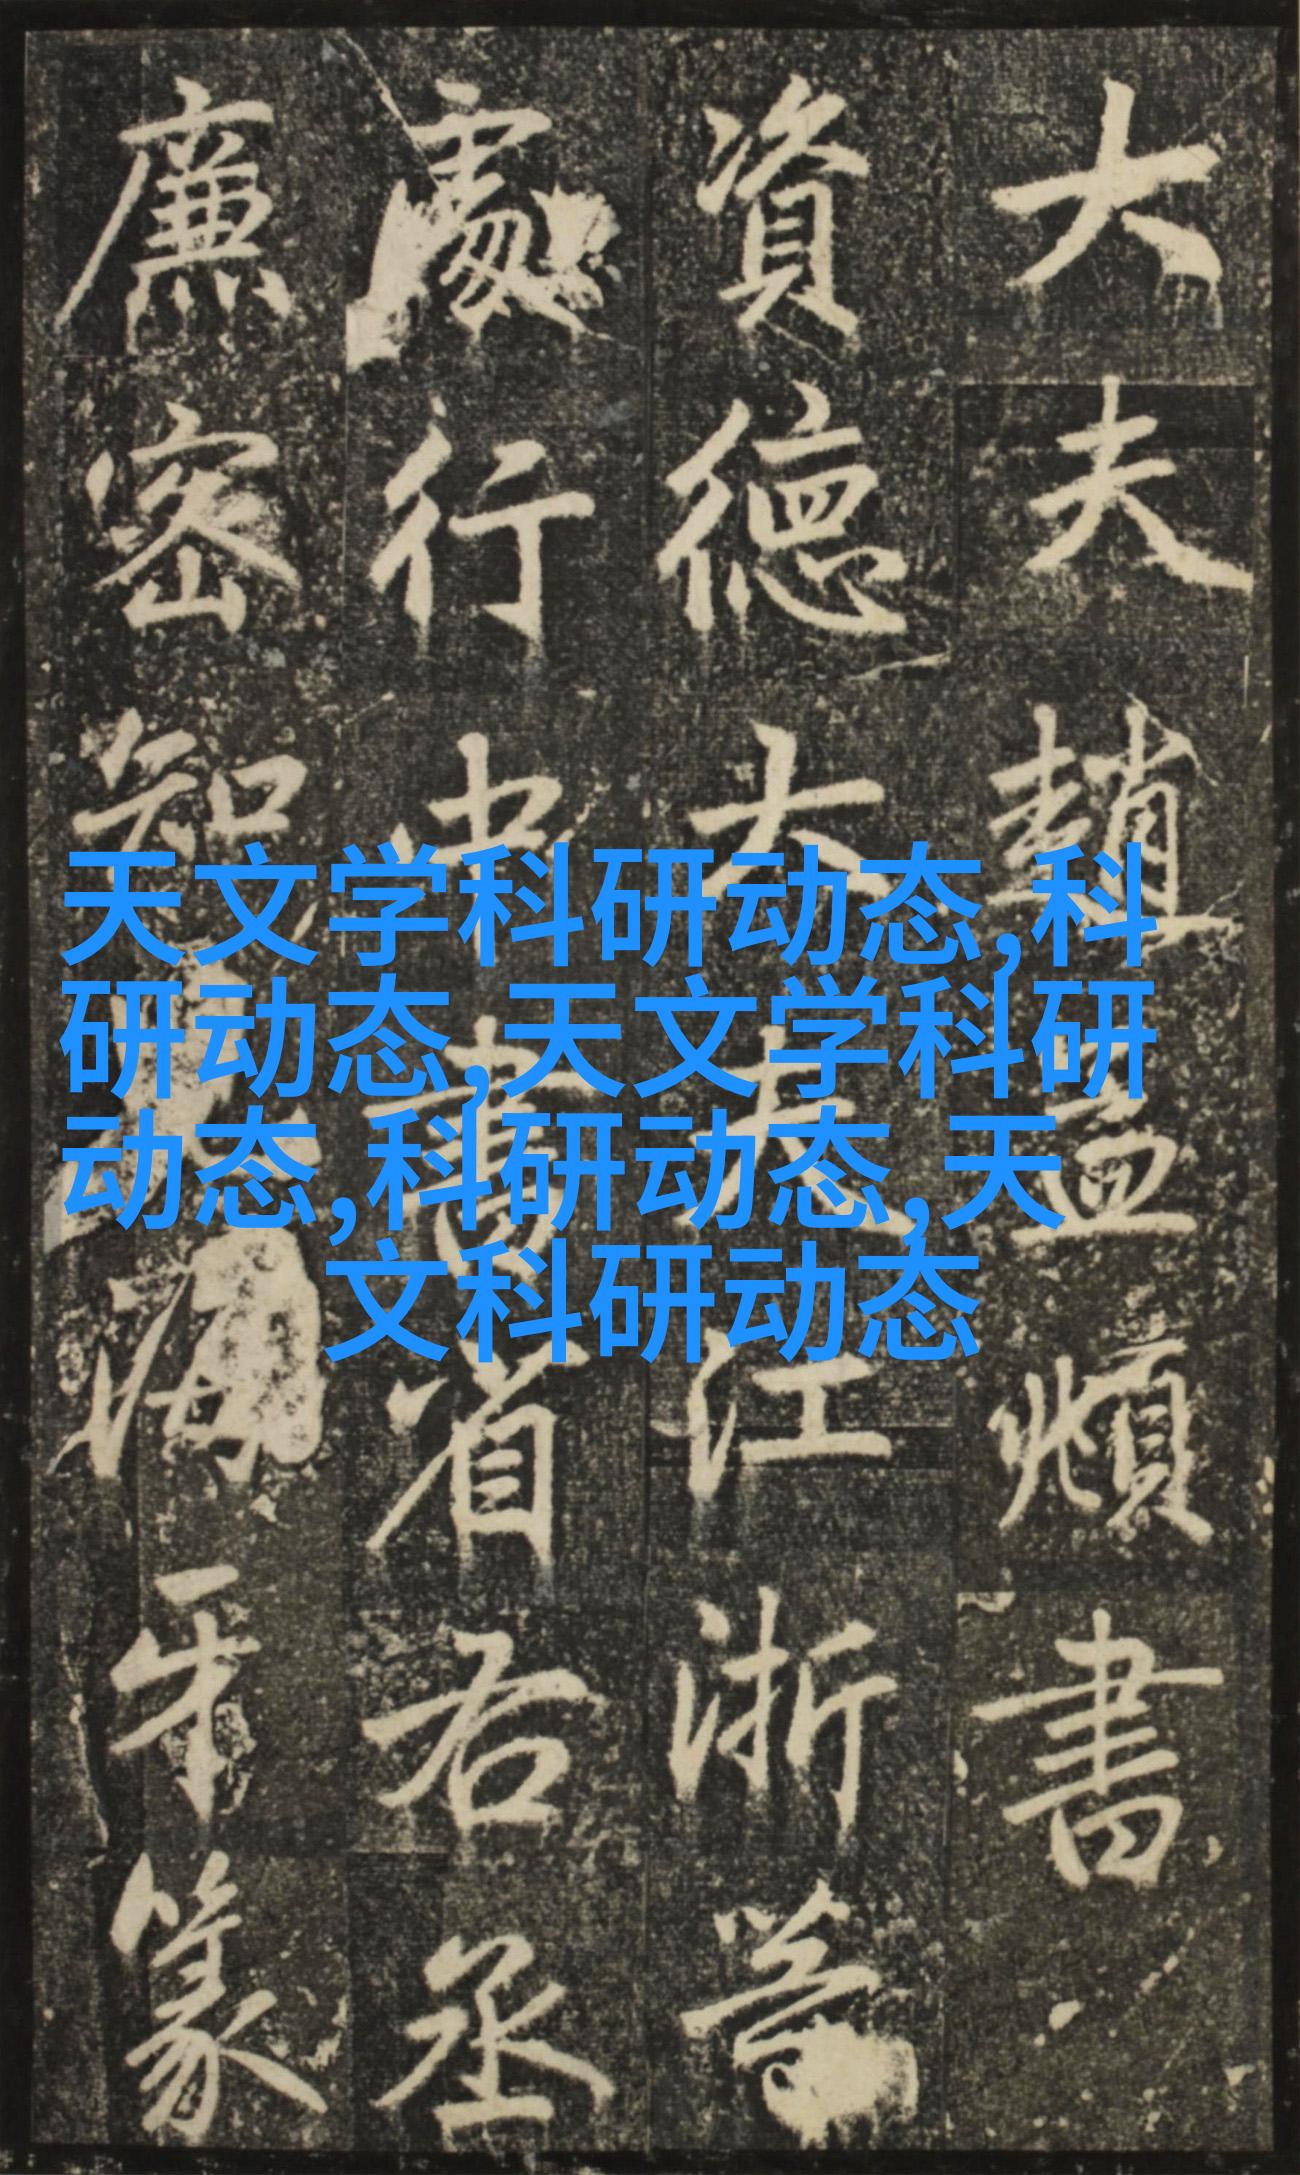 大夫趙孟頫書
資德大夫江浙等
處行中書省右丞
廉密知兒海牙篆
天文学科研动态,科
研动态,天文学科研
动态,科研动态,天
文科研动态